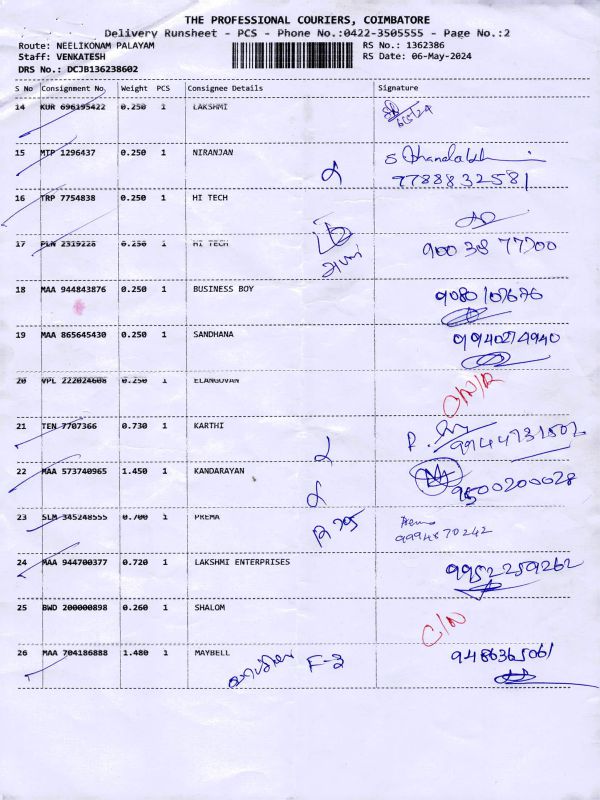 THE PROFESSIONAL COURIERS, COIMBATORE
Delivery Runsheet - PCS - Phone No.:0422-3505555 - Page No.:2
Route: NEELIKONAM PALAYAM RS No.: 1362386
Staff: VENKATESH RS Date: 06-May-2024
DRS No.: DCJB136238602
S No Consignment No. Weight PCS Consignee Details Signature
14 KUR 696195422 0.250 1 LAKSHMI
15 MTP 1296437 0.250 1 NIRANJAN
7788832581
16 TRP 7754838 0.250 1 HI TECH
17 PLN 2319228 0.250 1 HI TECH 900 38 77700
18 MAA 944843876 0.250 1 BUSINESS BOY 9080107676
19 MAA 865645430 0.250 1 SANDHANA 99940274940
20 VPL 222024608 0.250 1 ELANGOVAN
21 TEN 7707366 0.730 1 KARTHI 9944731502
22 MAA 573740965 1.450 1 KANDARAYAN 9500200028
23 SLM 345248555 0.700 1 PREMA Prema
9994870242
24 MAA 944700377 0.720 1 LAKSHMI ENTERPRISES 9952259262
25 BWD 200000898 0.260 1 SHALOM C/N
26 MAA 704186888 1.480 1 MAYBELL F-3 9486365061